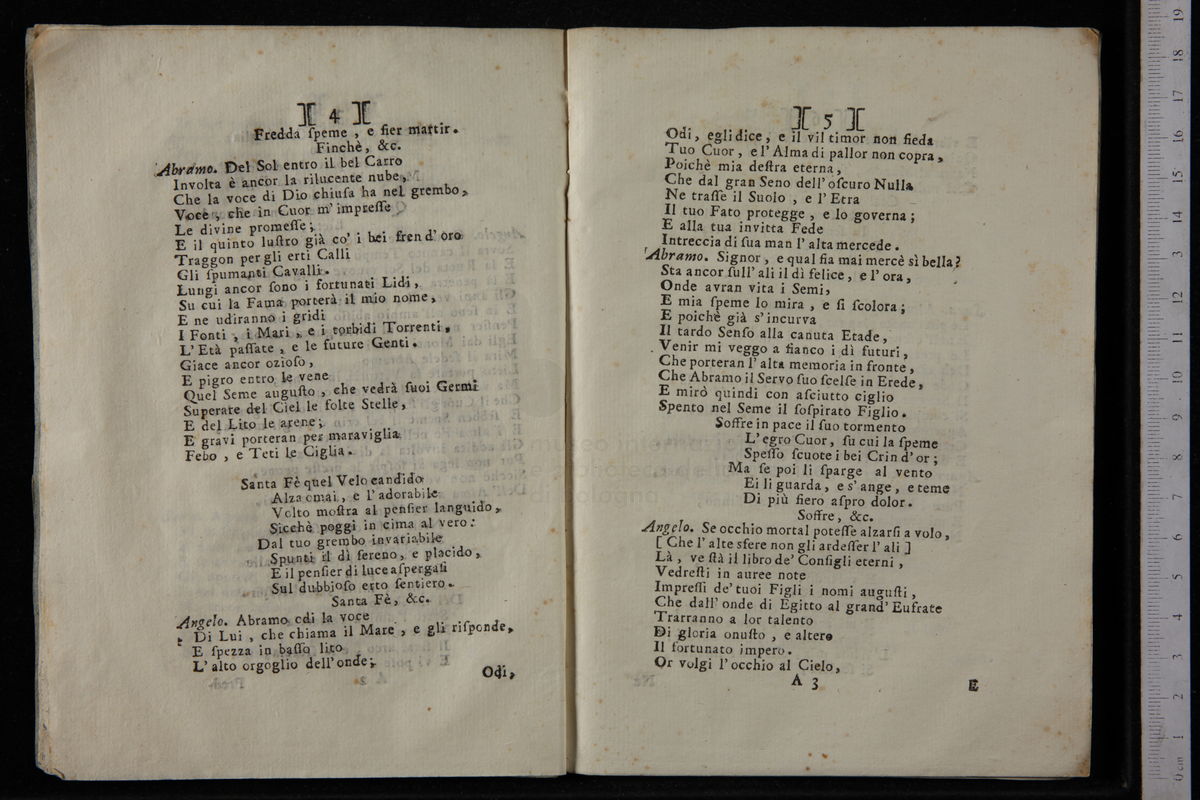 ][ 4 ][
Fredda ſpeme, e fier martir.
Finchè, &c.
Abramo. Del Sol entro il bel Carro
Involta è ancor la rilucente nube,
Che la voce di Dio chiuſa ha nel grembo,
Voce, che in Cuor m' impreſſe
Le divine promeſſe;
E il quinto luſtro già co' i bei fren d' oro
Traggon per gli erti Calli
Gli ſpumanti Cavalli.
Lungi ancor ſono i fortunati Lidi,
Su cui la Fama porterà il mio nome,
E ne udiranno i gridi
I Fonti, i Mari, e i torbidi Torrenti,
L' Età paſſate, e le future Genti.
Giace ancor ozioſo,
E pigro entro le vene
Quel Seme auguſto, che vedrà ſuoi Germi
Superate del Ciel le folte Stelle,
E del Lito le arene;
E gravi porteran per maraviglia
Febo, e Teti le Ciglia.
Santa Fè quel Velo candido
Alza omai, e l' adorabile
Volto moſtra al penſier languido,
Sicchè poggi in cima al vero:
Dal tuo grembo invariabile
Spunti il dì ſereno, e placido,
E il penſier di luce aſpergaſi
Sul dubbioſo erto ſentiero.
Santa Fè, &c.
Angelo. Abramo odi la voce
Di Lui, che chiama il Mare, e gli riſponde,
E ſpezza in baſſo lito
L' alto orgoglio dell' onde;
Odi,
][ 5 ][
Odi, egli dice, e il vil timor non fieda
Tuo Cuor, e l' Alma di pallor non copra,
Poichè mia deſtra eterna,
Che dal gran Seno dell' oſcuro Nulla
Ne traſſe il Suolo, e l' Etra
Il tuo Fato protegge, e lo governa;
E alla tua invitta Fede
Intreccia di ſua man l' alta mercede.
Abramo. Signor, e qual fia mai mercè sì bella?
Sta ancor full' ali il dì felice, e l' ora,
Onde avran vita i Semi,
E mia ſpeme lo mira, e ſi ſcolora;
E poichè già s' incurva
Il tardo Senſo alla canuta Etade,
Venir mi veggo a fianco i dì futuri,
Che porteran l' alta memoria in fronte,
Che Abramo il Servo ſuo ſcelſe in Erede,
E mirò quindi con aſciutto ciglio
Spento nel Seme il ſoſpirato Figlio.
Soffre in pace il ſuo tormento
L' egro Cuor, ſu cui la ſpeme
Speſſo ſcuote i bei Crin d' or;
Ma ſe poi li ſparge al vento
Ei li guarda, e s' ange, e teme
Di più fiero aſpro dolor.
Soffre, &c.
Angelo. Se occhio mortal poteſſe alzarſi a volo,
[ Che l' alte sfere non gli ardeſſer l' ali ]
Là, ve ſtà il libro de' Conſigli eterni,
Vedreſti in auree note
Impreſſi de' tuoi Figli i nomi auguſti,
Che dall' onde di Egitto al grand' Eufrate
Trarranno a lor talento
Di gloria onuſto, e altero
Il fortunato impero.
Or volgi l' occhio al Cielo,
A 3
E